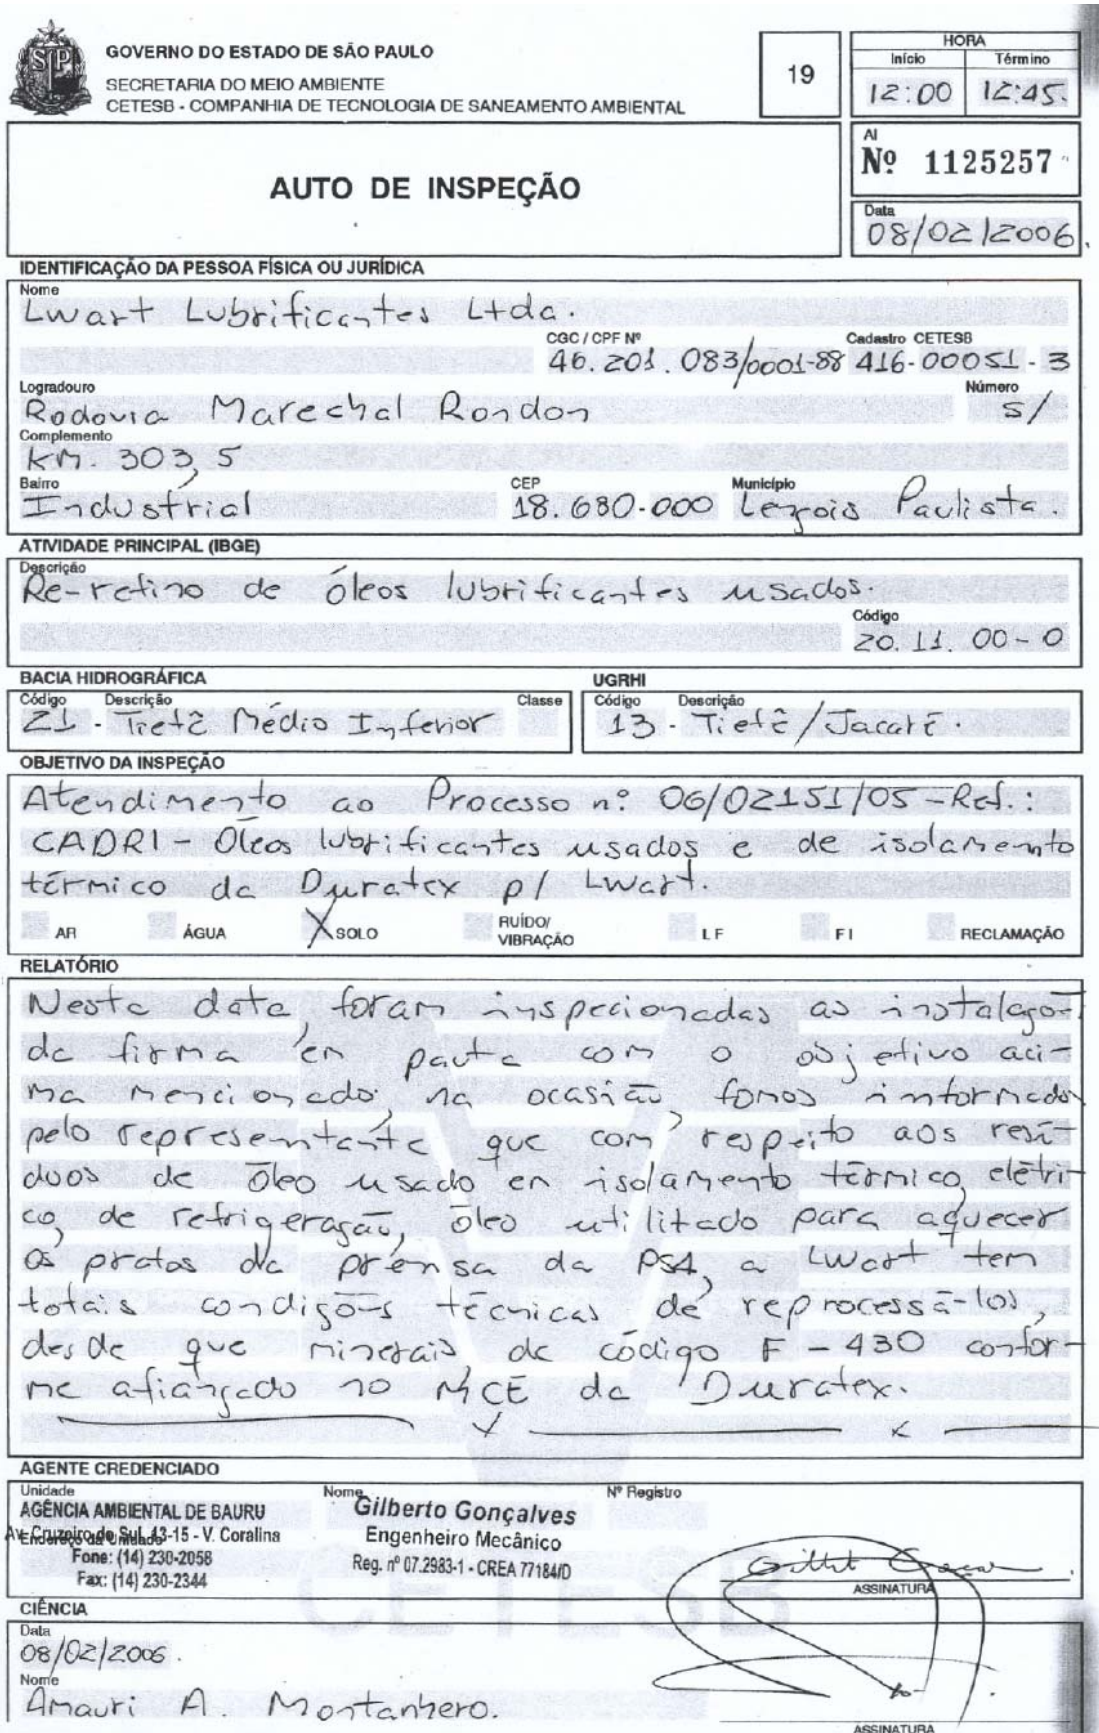 GOVERNO DO ESTADO DE SÃO PAULO
SECRETARIA DO MEIO AMBIENTE
CETESB - COMPANHIA DE TECNOLOGIA DE SANEAMENTO AMBIENTAL
19
HORA
Início Término
12:00 12:45
AUTO DE INSPEÇÃO
AI
Nº 1125257
Data
08/02/2006
IDENTIFICAÇÃO DA PESSOA FÍSICA OU JURÍDICA
Nome
Lwart Lubrificantes Ltda.
CGC / CPF Nº Cadastro CETESB
46.201.083/0001-88 416-00051-3
Logradouro Número
Rodovia Marechal Rondon s/
Complemento
KM. 303,5
Bairro CEP Município
Industrial 18.680-000 Lençois Paulista
ATIVIDADE PRINCIPAL (IBGE)
Descrição
Re-refino de óleos lubrificantes usados
Código
20.11.00-0
BACIA HIDROGRÁFICA UGRHI
Código Descrição Classe Código Descrição
21 - Tietê Médio Inferior 13 - Tietê/Jacaré.
OBJETIVO DA INSPEÇÃO
Atendimento ao Processo nº 06/02151/05 - Ref.:
CADRI - Óleos lubrificantes usados e de isolamento
térmico da Duratex p/ Lwart.
AR ÁGUA X SOLO RUÍDO/ VIBRAÇÃO LF FI RECLAMAÇÃO
RELATÓRIO
Nesta data, foram inspecionadas as instalações
da firma em pauta com o objetivo aci-
ma mencionado, na ocasião, fomos informados
pelo representante que com respeito aos resí-
duos de óleo usado em isolamento térmico, elétri-
co, de refrigeração, óleo utilizado para aquecer
os pratos da prensa da PS4, a Lwart tem
totais condições técnicas de reprocessá-los
desde que minerais de código F-430 confor-
me afiançado no MCE da Duratex.
AGENTE CREDENCIADO
Unidade Nome Nº Registro
AGÊNCIA AMBIENTAL DE BAURU Gilberto Gonçalves
Av. Cruzeiro do Sul, 13-15 - V. Coralina Engenheiro Mecânico
Endereço da Unidade
Fone: (14) 230-2058 Reg. nº 07.2983-1 - CREA 77184/D
Fax: (14) 230-2344
ASSINATURA
CIÊNCIA
Data
08/02/2006.
Nome
Amauri A. Montanhero.
ASSINATURA
CETESB